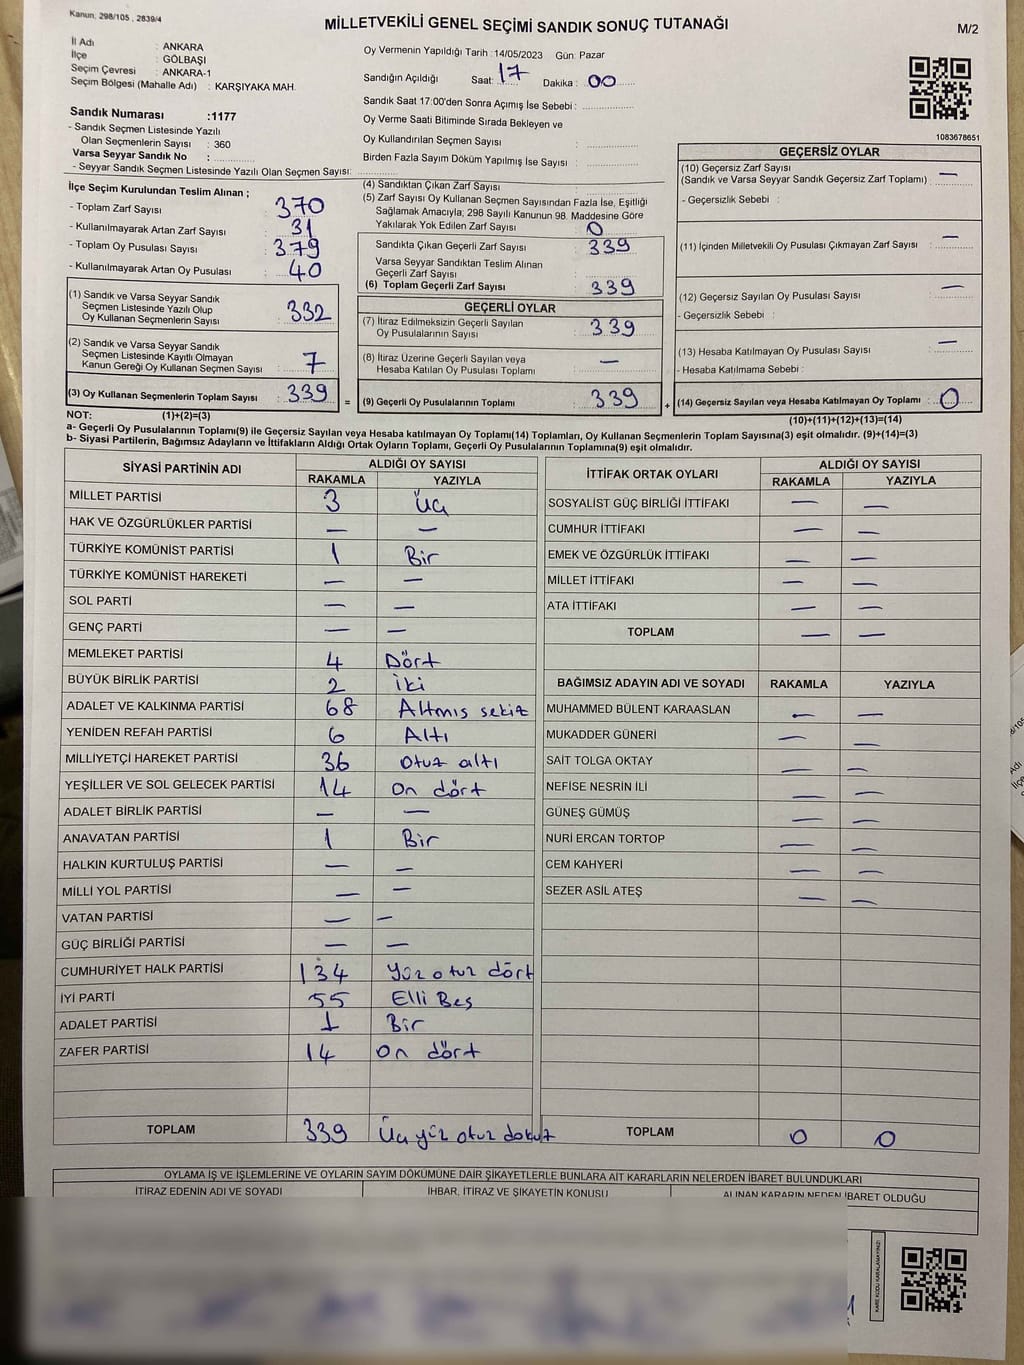 Kanun, 298/105 , 2839/4
MİLLETVEKİLİ GENEL SEÇİMİ SANDIK SONUÇ TUTANAĞI
M/2
İl Adı : ANKARA
İlçe : GÖLBAŞI
Seçim Çevresi : ANKARA-1
Seçim Bölgesi (Mahalle Adı) : KARŞIYAKA MAH.
Oy Vermenin Yapıldığı Tarih : 14/05/2023 Gün: Pazar
Sandığın Açıldığı Saat: 17 Dakika : 00
Sandık Saat 17:00'den Sonra Açımış İse Sebebi :
Oy Verme Saati Bitiminde Sırada Bekleyen ve
Oy Kullandırılan Seçmen Sayısı :
Birden Fazla Sayım Döküm Yapılmış İse Sayısı :
1083678651
Sandık Numarası :1177
- Sandık Seçmen Listesinde Yazılı
Olan Seçmenlerin Sayısı : 360
Varsa Seyyar Sandık No :
- Seyyar Sandık Seçmen Listesinde Yazılı Olan Seçmen Sayısı:
İlçe Seçim Kurulundan Teslim Alınan ;
- Toplam Zarf Sayısı : 370
- Kullanılmayarak Artan Zarf Sayısı : 31
- Toplam Oy Pusulası Sayısı : 379
- Kullanılmayarak Artan Oy Pusulası : 40
(1) Sandık ve Varsa Seyyar Sandık
Seçmen Listesinde Yazılı Olup
Oy Kullanan Seçmenlerin Sayısı : 332
(2) Sandık ve Varsa Seyyar Sandık
Seçmen Listesinde Kayıtlı Olmayan
Kanun Gereği Oy Kullanan Seçmen Sayısı : 7
(3) Oy Kullanan Seçmenlerin Toplam Sayısı : 339 =
(4) Sandıktan Çıkan Zarf Sayısı :
(5) Zarf Sayısı Oy Kullanan Seçmen Sayısından Fazla İse, Eşitliği
Sağlamak Amacıyla; 298 Sayılı Kanunun 98. Maddesine Göre
Yakılarak Yok Edilen Zarf Sayısı : 0
Sandıkta Çıkan Geçerli Zarf Sayısı : 339
Varsa Seyyar Sandıktan Teslim Alınan
Geçerli Zarf Sayısı :
(6) Toplam Geçerli Zarf Sayısı : 339
GEÇERLİ OYLAR
(7) İtiraz Edilmeksizin Geçerli Sayılan
Oy Pusulalarının Sayısı : 339
(8) İtiraz Üzerine Geçerli Sayılan veya
Hesaba Katılan Oy Pusulası Toplamı : —
(9) Geçerli Oy Pusulalarının Toplamı : 339 +
GEÇERSİZ OYLAR
(10) Geçersiz Zarf Sayısı
(Sandık ve Varsa Seyyar Sandık Geçersiz Zarf Toplamı) : —
- Geçersizlik Sebebi :
(11) İçinden Milletvekili Oy Pusulası Çıkmayan Zarf Sayısı : —
(12) Geçersiz Sayılan Oy Pusulası Sayısı : —
- Geçersizlik Sebebi :
(13) Hesaba Katılmayan Oy Pusulası Sayısı : —
- Hesaba Katılmama Sebebi :
(14) Geçersiz Sayılan veya Hesaba Katılmayan Oy Toplamı : 0
NOT: (1)+(2)=(3)
(10)+(11)+(12)+(13)=(14)
a- Geçerli Oy Pusulalarının Toplamı(9) ile Geçersiz Sayılan veya Hesaba katılmayan Oy Toplamı(14) Toplamları, Oy Kullanan Seçmenlerin Toplam Sayısına(3) eşit olmalıdır. (9)+(14)=(3)
b- Siyasi Partilerin, Bağımsız Adayların ve İttifakların Aldığı Ortak Oyların Toplamı, Geçerli Oy Pusulalarının Toplamına(9) eşit olmalıdır.
SİYASİ PARTİNİN ADI ALDIĞI OY SAYISI
RAKAMLA YAZIYLA
MİLLET PARTİSİ 3 Üç
HAK VE ÖZGÜRLÜKLER PARTİSİ — —
TÜRKİYE KOMÜNİST PARTİSİ 1 Bir
TÜRKİYE KOMÜNİST HAREKETİ — —
SOL PARTİ — —
GENÇ PARTİ — —
MEMLEKET PARTİSİ 4 Dört
BÜYÜK BİRLİK PARTİSİ 2 İki
ADALET VE KALKINMA PARTİSİ 68 Altmış sekiz
YENİDEN REFAH PARTİSİ 6 Altı
MİLLİYETÇİ HAREKET PARTİSİ 36 Otuz altı
YEŞİLLER VE SOL GELECEK PARTİSİ 14 On dört
ADALET BİRLİK PARTİSİ — —
ANAVATAN PARTİSİ 1 Bir
HALKIN KURTULUŞ PARTİSİ — —
MİLLİ YOL PARTİSİ — —
VATAN PARTİSİ — —
GÜÇ BİRLİĞİ PARTİSİ — —
CUMHURİYET HALK PARTİSİ 134 Yüz otuz dört
İYİ PARTİ 55 Elli Beş
ADALET PARTİSİ 1 Bir
ZAFER PARTİSİ 14 On dört
TOPLAM 339 Üç yüz otuz dokuz
İTTİFAK ORTAK OYLARI ALDIĞI OY SAYISI
RAKAMLA YAZIYLA
SOSYALİST GÜÇ BİRLİĞİ İTTİFAKI — —
CUMHUR İTTİFAKI — —
EMEK VE ÖZGÜRLÜK İTTİFAKI — —
MİLLET İTTİFAKI — —
ATA İTTİFAKI — —
TOPLAM — —
BAĞIMSIZ ADAYIN ADI VE SOYADI RAKAMLA YAZIYLA
MUHAMMED BÜLENT KARAASLAN — —
MUKADDER GÜNERİ — —
SAİT TOLGA OKTAY — —
NEFİSE NESRİN İLİ — —
GÜNEŞ GÜMÜŞ — —
NURİ ERCAN TORTOP — —
CEM KAHYERİ — —
SEZER ASİL ATEŞ — —
TOPLAM 0 0
OYLAMA İŞ VE İŞLEMLERİNE VE OYLARIN SAYIM DÖKÜMÜNE DAİR ŞİKAYETLERLE BUNLARA AİT KARARLARIN NELERDEN İBARET BULUNDUKLARI
İTİRAZ EDENİN ADI VE SOYADI İHBAR, İTİRAZ VE ŞİKAYETİN KONUSU ALINAN KARARIN NEDEN İBARET OLDUĞU
KARE KODU KARALAMAYINIZ!